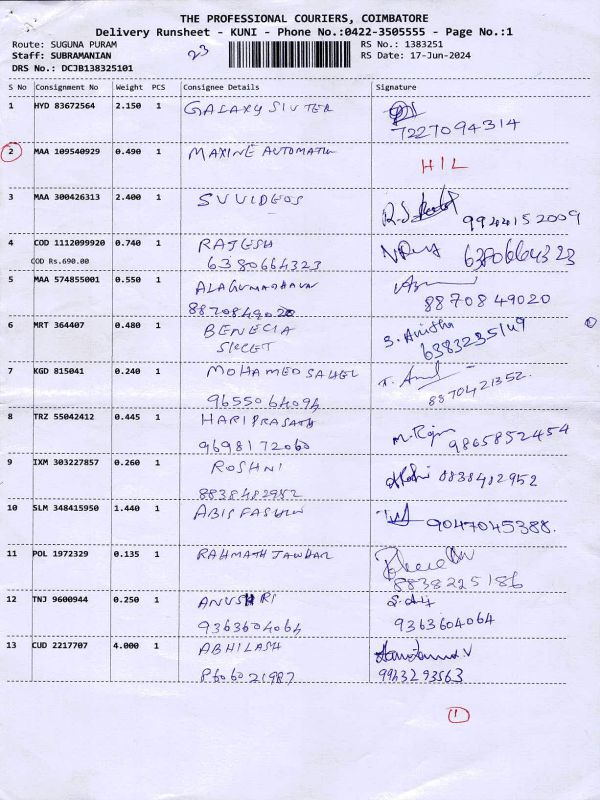 THE PROFESSIONAL COURIERS, COIMBATORE
Delivery Runsheet - KUNI - Phone No.:0422-3505555 - Page No.:1
Route: SUGUNA PURAM RS No.: 1383251
Staff: SUBRAMANIAN 23 RS Date: 17-Jun-2024
DRS No.: DCJB138325101
S No Consignment No Weight PCS Consignee Details Signature
1 HYD 83672564 2.150 1 GALAXY SIVTER
7227094314
2 MAA 109540929 0.490 1 MAXINE AUTOMATIN HIL
3 MAA 300426313 2.400 1 SVVIDEOS 9944152009
4 COD 1112099920 0.740 1 RAJESH
COD Rs.690.00 6380664323 6380664323
5 MAA 574855001 0.550 1
8870849020 8870849020
6 MRT 364407 0.480 1 BENECIA S. Anitha
6383235149
7 KGD 815041 0.240 1 MOHAMED
9655064094 8870421352.
8 TRZ 55042412 0.445 1 HARIPRASATH M. Raja
9698172060 9865852454
9 IXM 303227857 0.260 1 ROSHNI 8838482952
8838482952
10 SLM 348415950 1.440 1 ABIS 9047045388.
11 POL 1972329 0.135 1 RAHMATH JAWHAR
8838225186
12 TNJ 9600944 0.250 1 ANUSHRI
9363604064 9363604064
13 CUD 2217707 4.000 1 ABHILASH
8606021987 9943293563
1